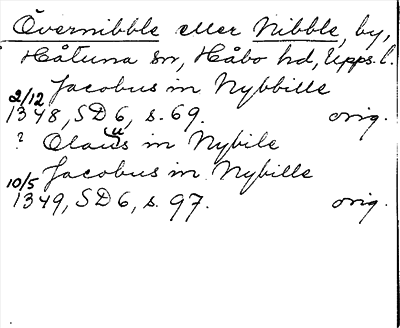 Övernibble eller Nibble, by,
Håtuna sn, Håbo hd, Upps. l.
Jacobus in Nybbille
2/12 1348, SD 6, s. 69. orig.
? Olauus in Nybile
Jacobus in Nybille
10/5 1349, SD 6, s. 97. orig.